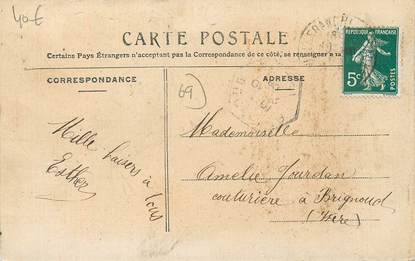 40€
CARTE POSTALE
Certains Pays Étrangers n'acceptant pas la Correspondance de ce côté, se renseigner à la
CORRESPONDANCE
ADRESSE
RÉPUBLIQUE FRANÇAISE
5c
POSTES
69)
Mille baisers à tous
Esther
Mademoiselle
Amelie Jourdan
couturière à Brignoud
(Isère)